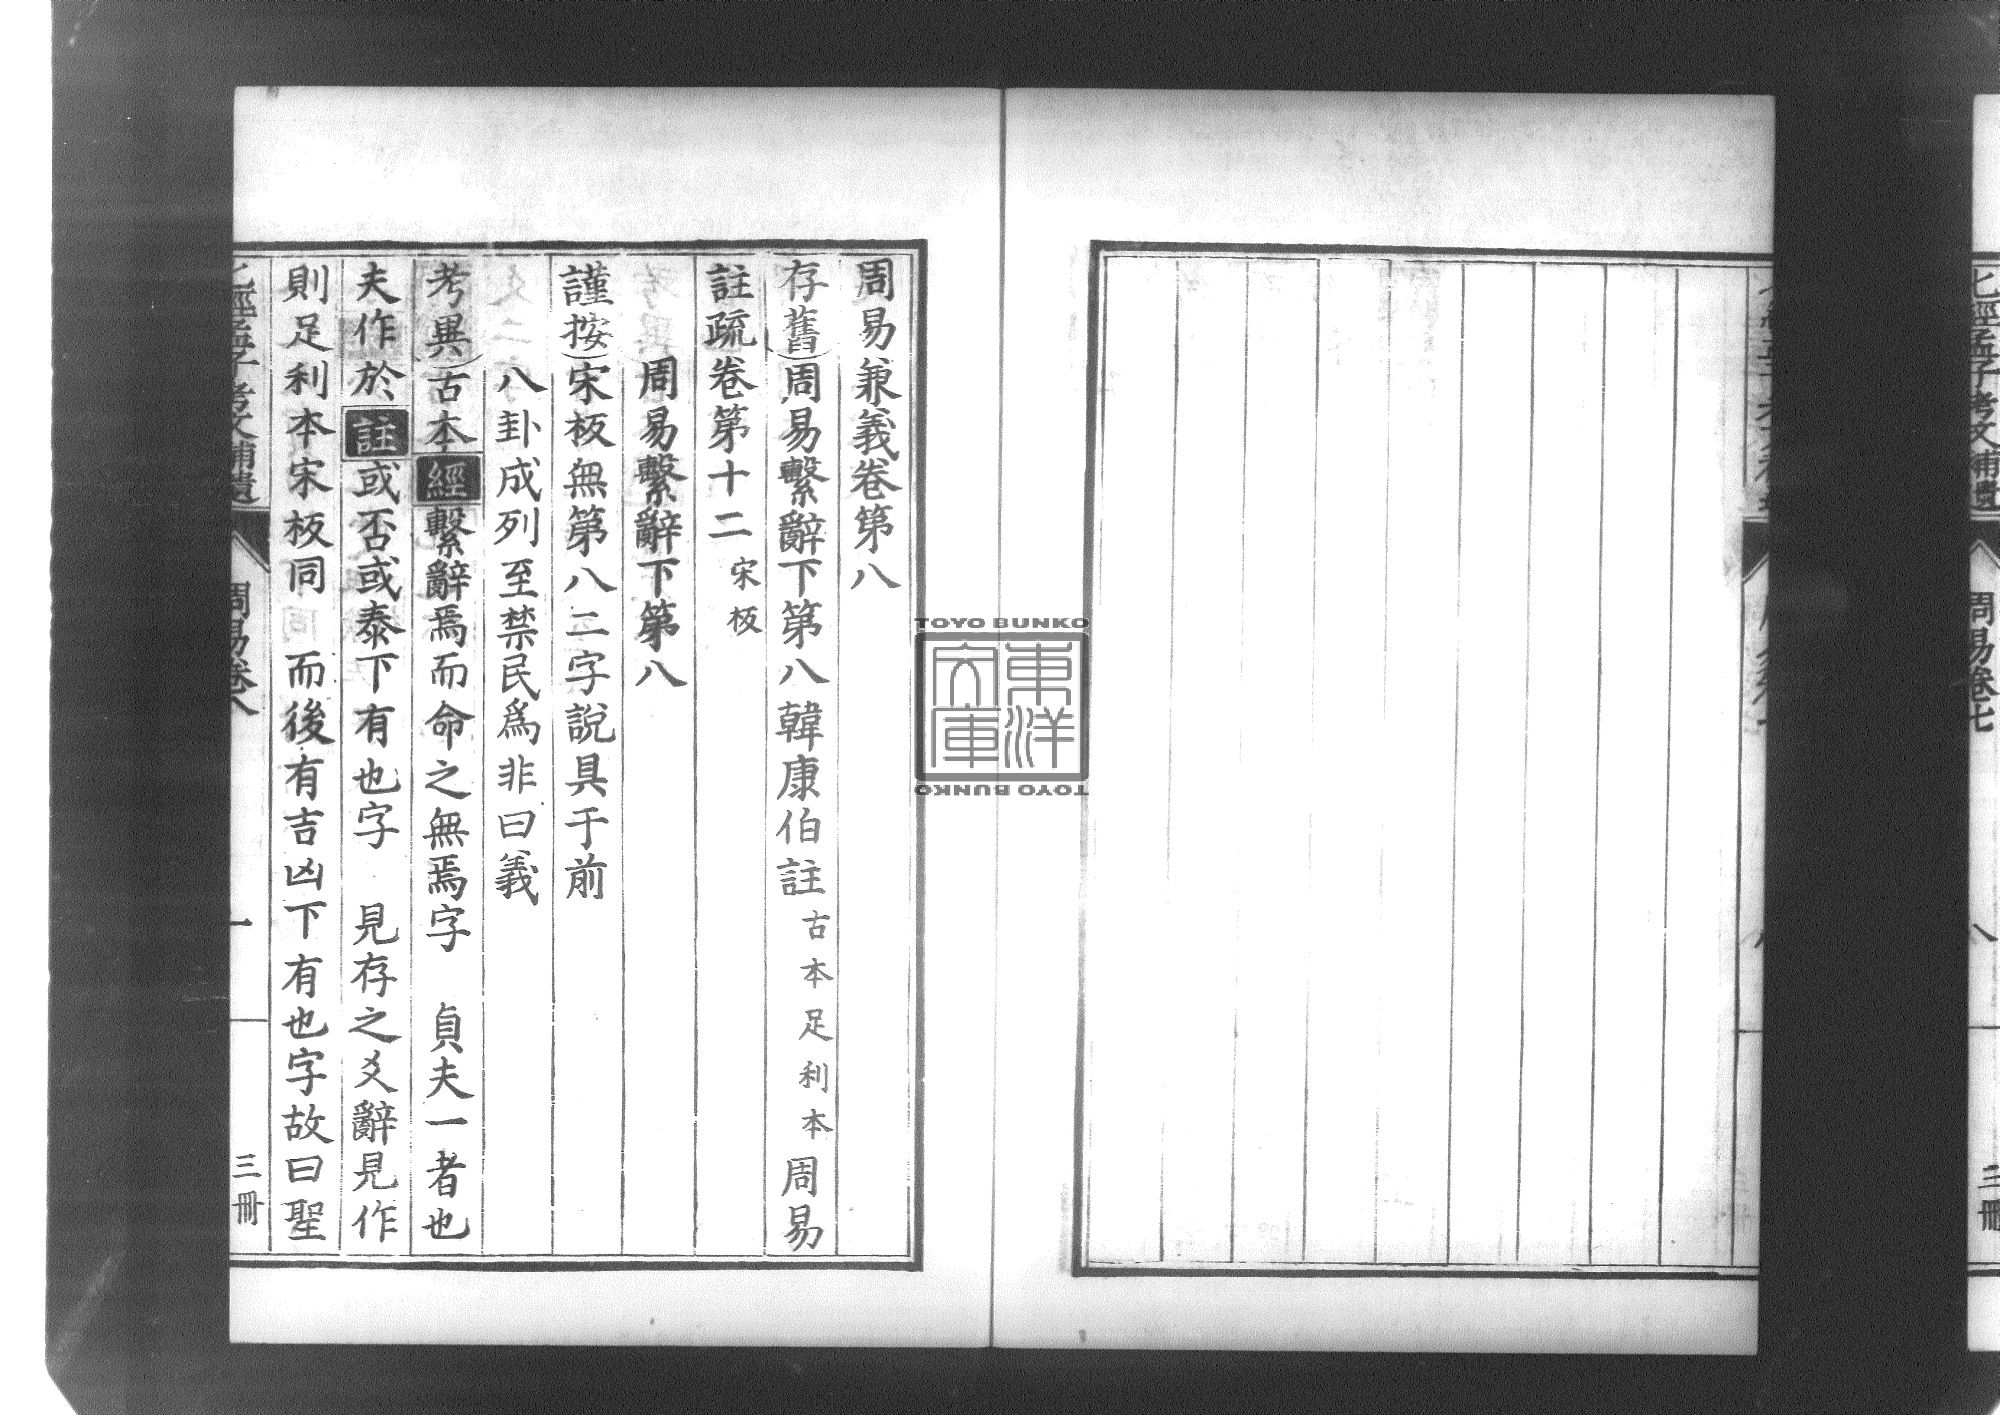 七經孟子考文補遺 周易卷七 八 三冊
周易兼義卷第八
存舊周易繫辭下第八韓康伯註古本足利本周易
註疏卷第十二宋板
周易繫辭下第八
謹按宋板無第八二字說具于前
八卦成列至禁民爲非曰義
考異古本經繫辭焉而命之無焉字 貞夫一者也
夫作於註或否或泰下有也字 見存之爻辭見作
則足利本宋板同 而後有吉凶下有也字故曰聖
七經孟子考文補遺 周易卷八 一 三冊
TOYO BUNKO
東洋文庫
TOYO BUNKO